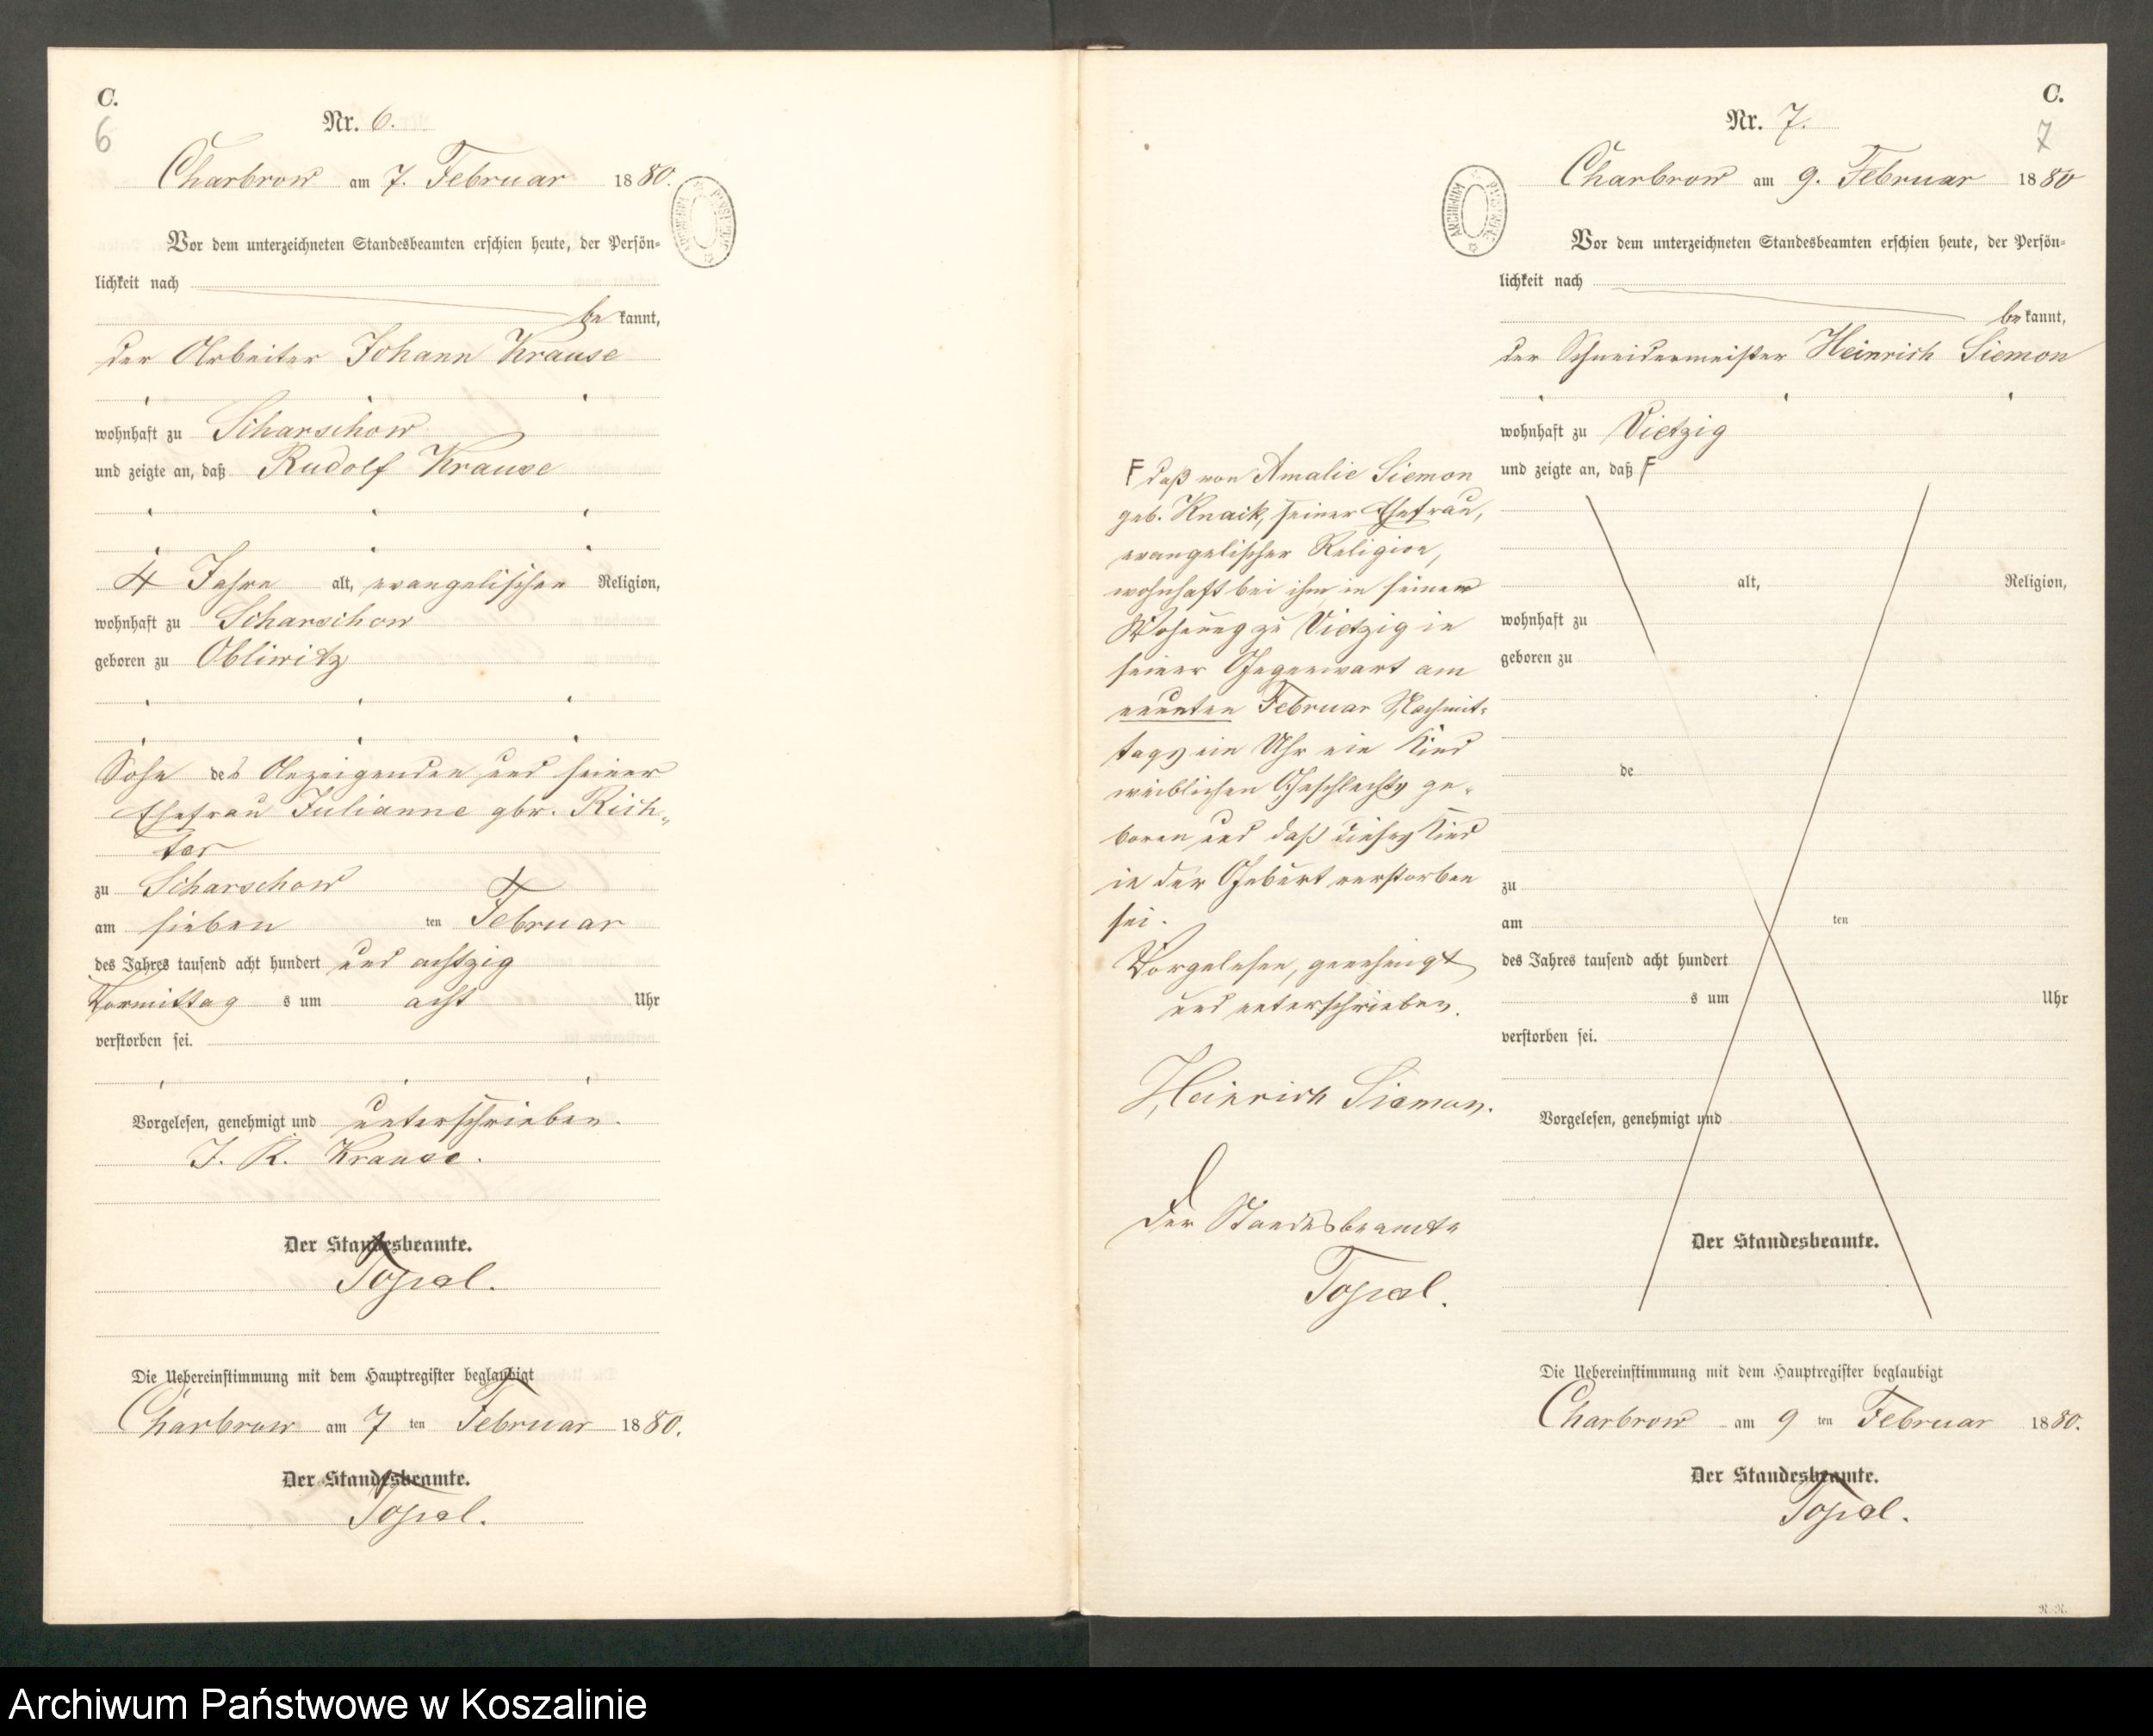 C.
6
Nr. 6.
Charbrow am 7. Februar 1880.
Vor dem unterzeichneten Standesbeamten erschien heute, der Persön=
lichkeit nach
bekannt,
der Arbeiter Johann Krause
wohnhaft zu Scharschow
und zeigte an, daß Rudolf Krause
4 Jahre alt, evangelischer Religion,
wohnhaft zu Scharschow
geboren zu Obliwitz
Sohn des Anzeigenden und seiner
Ehefrau Julianne gbr. Rich„
ter
zu Scharschow
am sieben ten Februar
des Jahres tausend acht hundert und achtzig
Vormittag s um acht Uhr
verstorben sei.
Vorgelesen, genehmigt und unterschrieben.
J. R. Krause.
Der Standesbeamte.
Topel.
Die Uebereinstimmung mit dem Hauptregister beglaubigt
Charbrow am 7 ten Februar 1880.
Der Standesbeamte.
Topel.
C.
7
Nr. 7.
Charbrow am 9. Februar 1880
Vor dem unterzeichneten Standesbeamten erschien heute, der Persön=
lichkeit nach
bekannt,
der Schneidermeister Heinrich Siemon
wohnhaft zu Vietzig
und zeigte an, daß F
F daß von Amalie Siemon
geb. Knaik, seiner Ehefrau,
evangelischer Religion,
wohnhaft bei ihm in seiner
Wohnung zu Vietzig in
seiner Gegenwart am
neunten Februar Nachmit=
tags ein Uhr ein Kind
weiblichen Geschlechts ge=
boren und daß dieses Kind
in der Geburt verstorben
sei.
Vorgelesen, genehmigt
und unterschrieben.
Heinrich Siemon.
Der Standesbeamte
Topel.
alt, Religion,
wohnhaft zu
geboren zu
de
zu
am ten
des Jahres tausend acht hundert
s um Uhr
verstorben sei.
Vorgelesen, genehmigt und
Der Standesbeamte.
Die Uebereinstimmung mit dem Hauptregister beglaubigt
Charbrow am 9 ten Februar 1880.
Der Standesbeamte.
Topel.
Archiwum Państwowe w Koszalinie